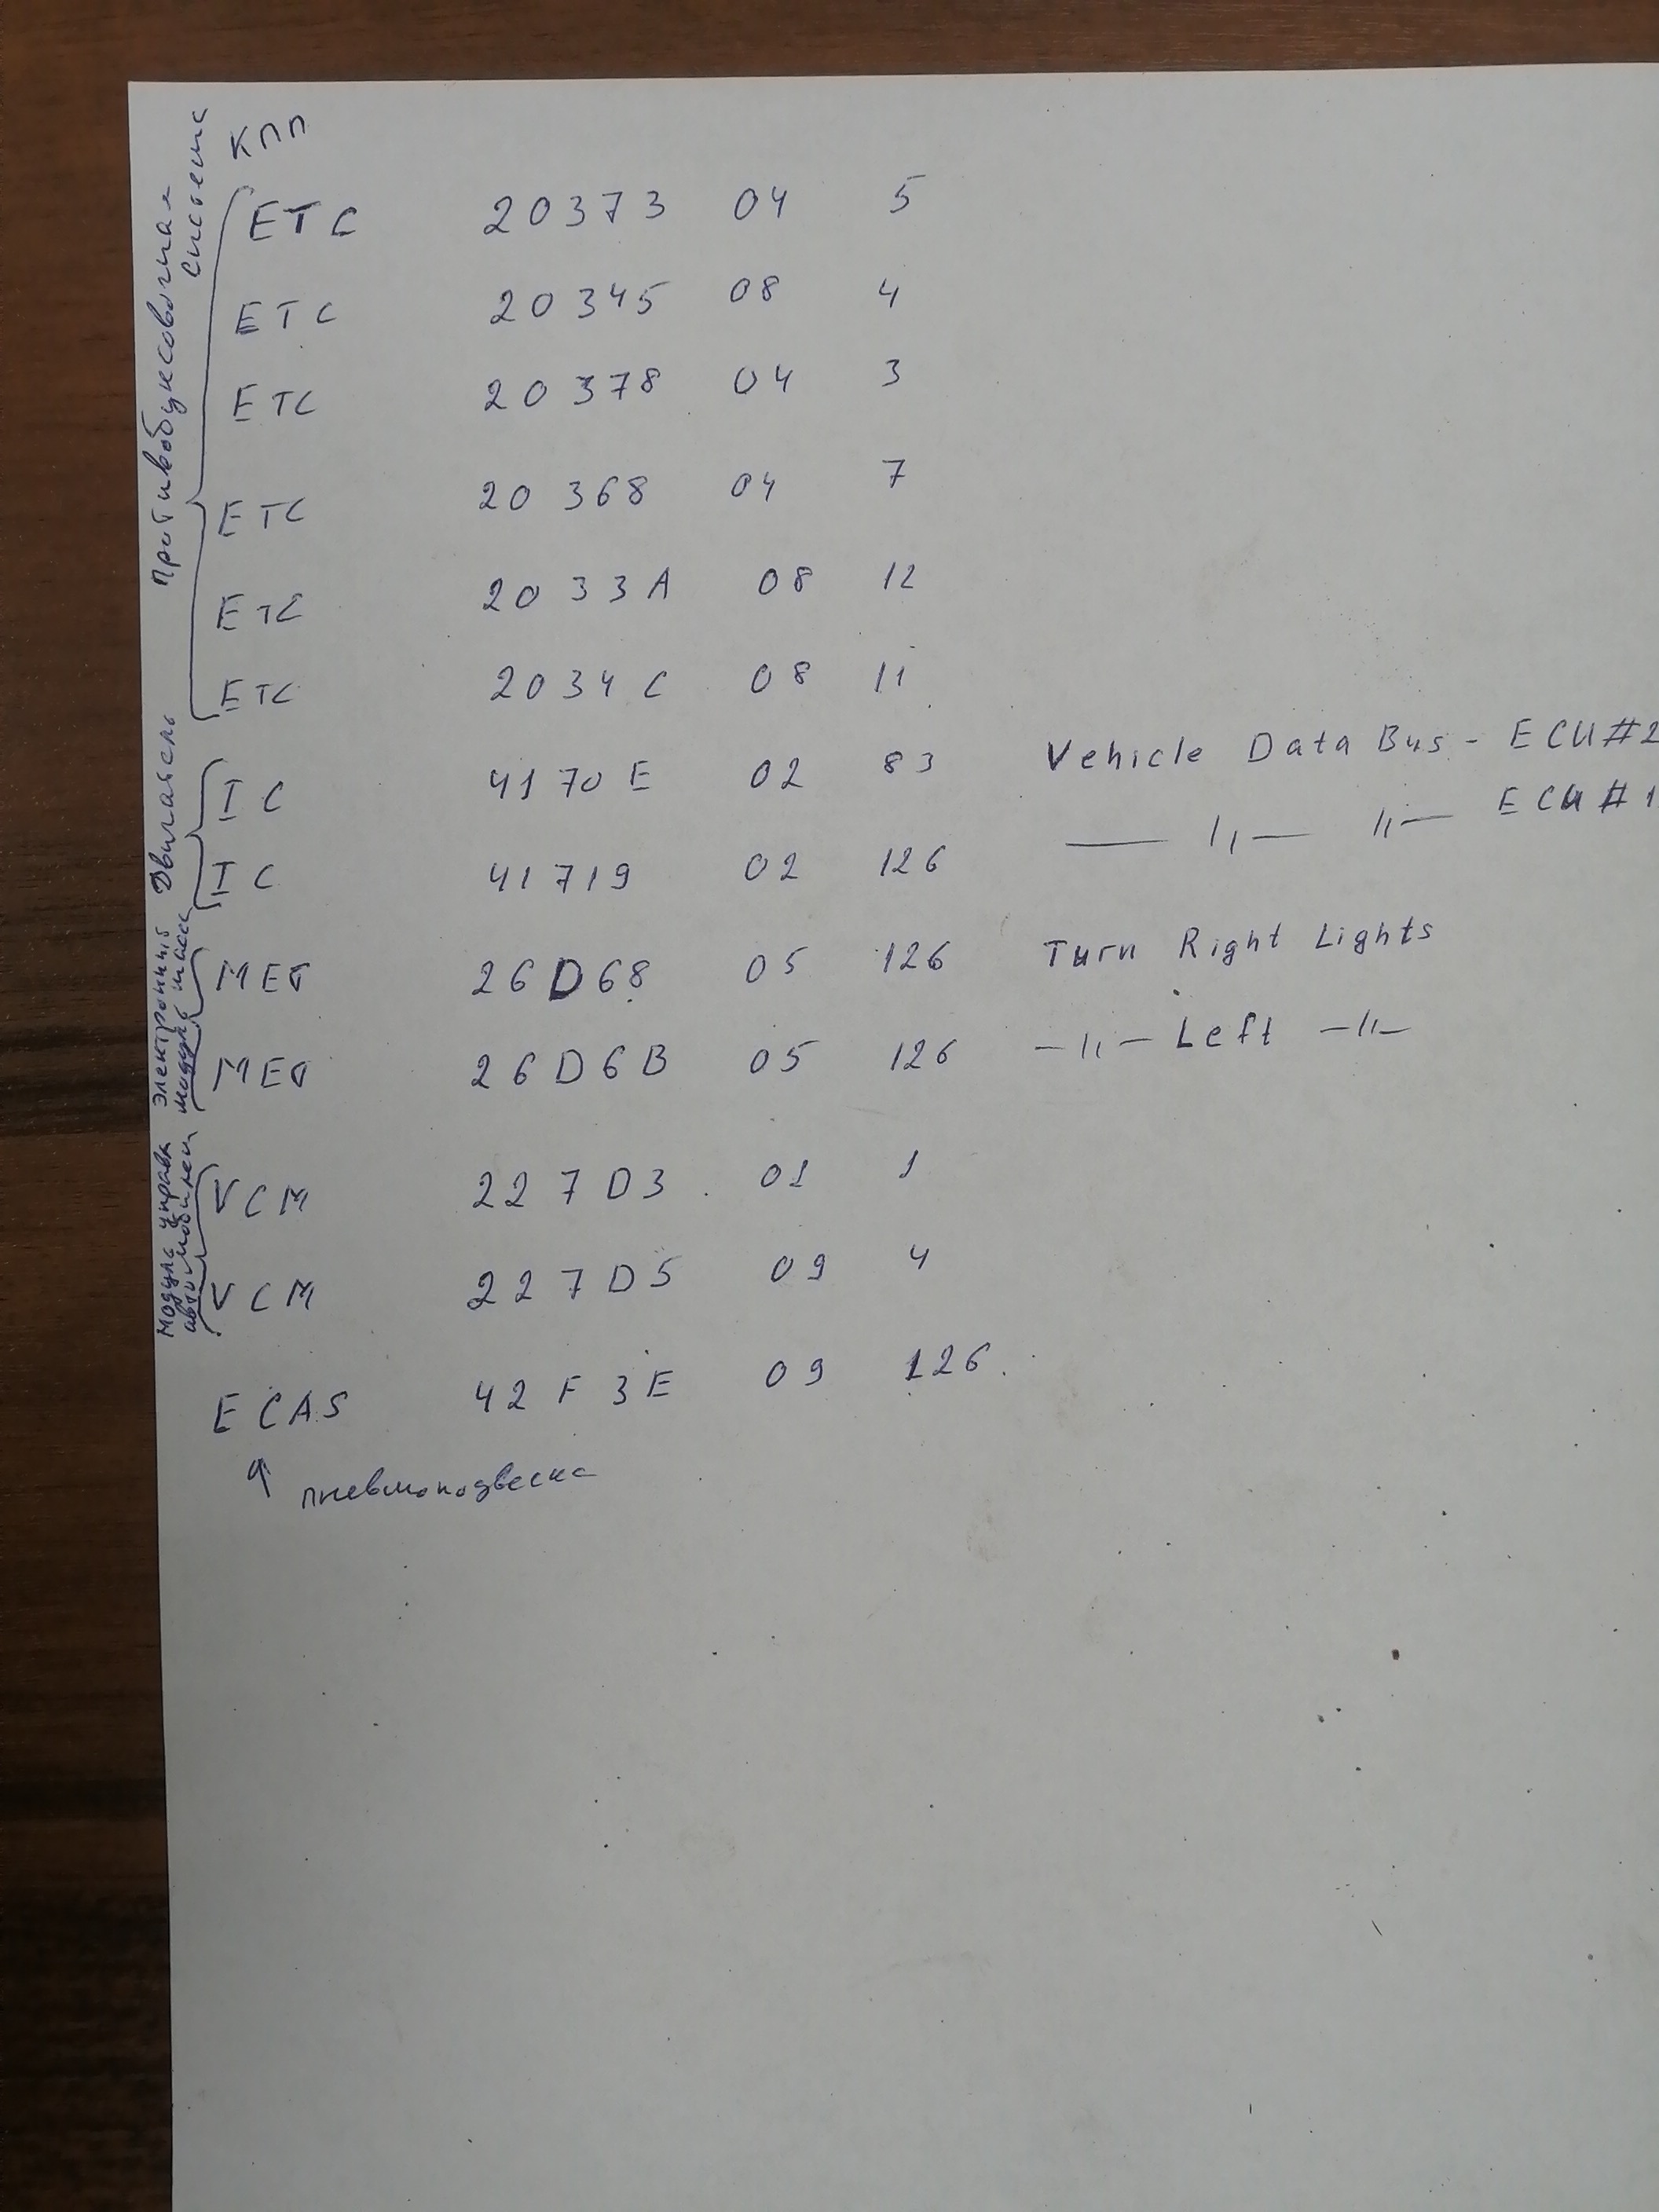 КПП
Противобуксовочная
система
ETC 20373 04 5
ETC 20345 08 4
ETC 20378 04 3
ETC 20368 04 7
ETC 2033A 08 12
ETC 2034C 08 11
Двигатель
IC 4170E 02 83 Vehicle Data Bus - ECU#2
IC 41719 02 126 — 〃 — 〃 — ECU#1
Электронный
модуль масс
MET 26D68 05 126 Turn Right Lights
MET 26D6B 05 126 — 〃 — Left — 〃 —
Модуль управл
автомобилем
VCM 227D3 01 1
VCM 227D5 09 4
ECAS 42F3E 09 126
↑ пневмоподвеска